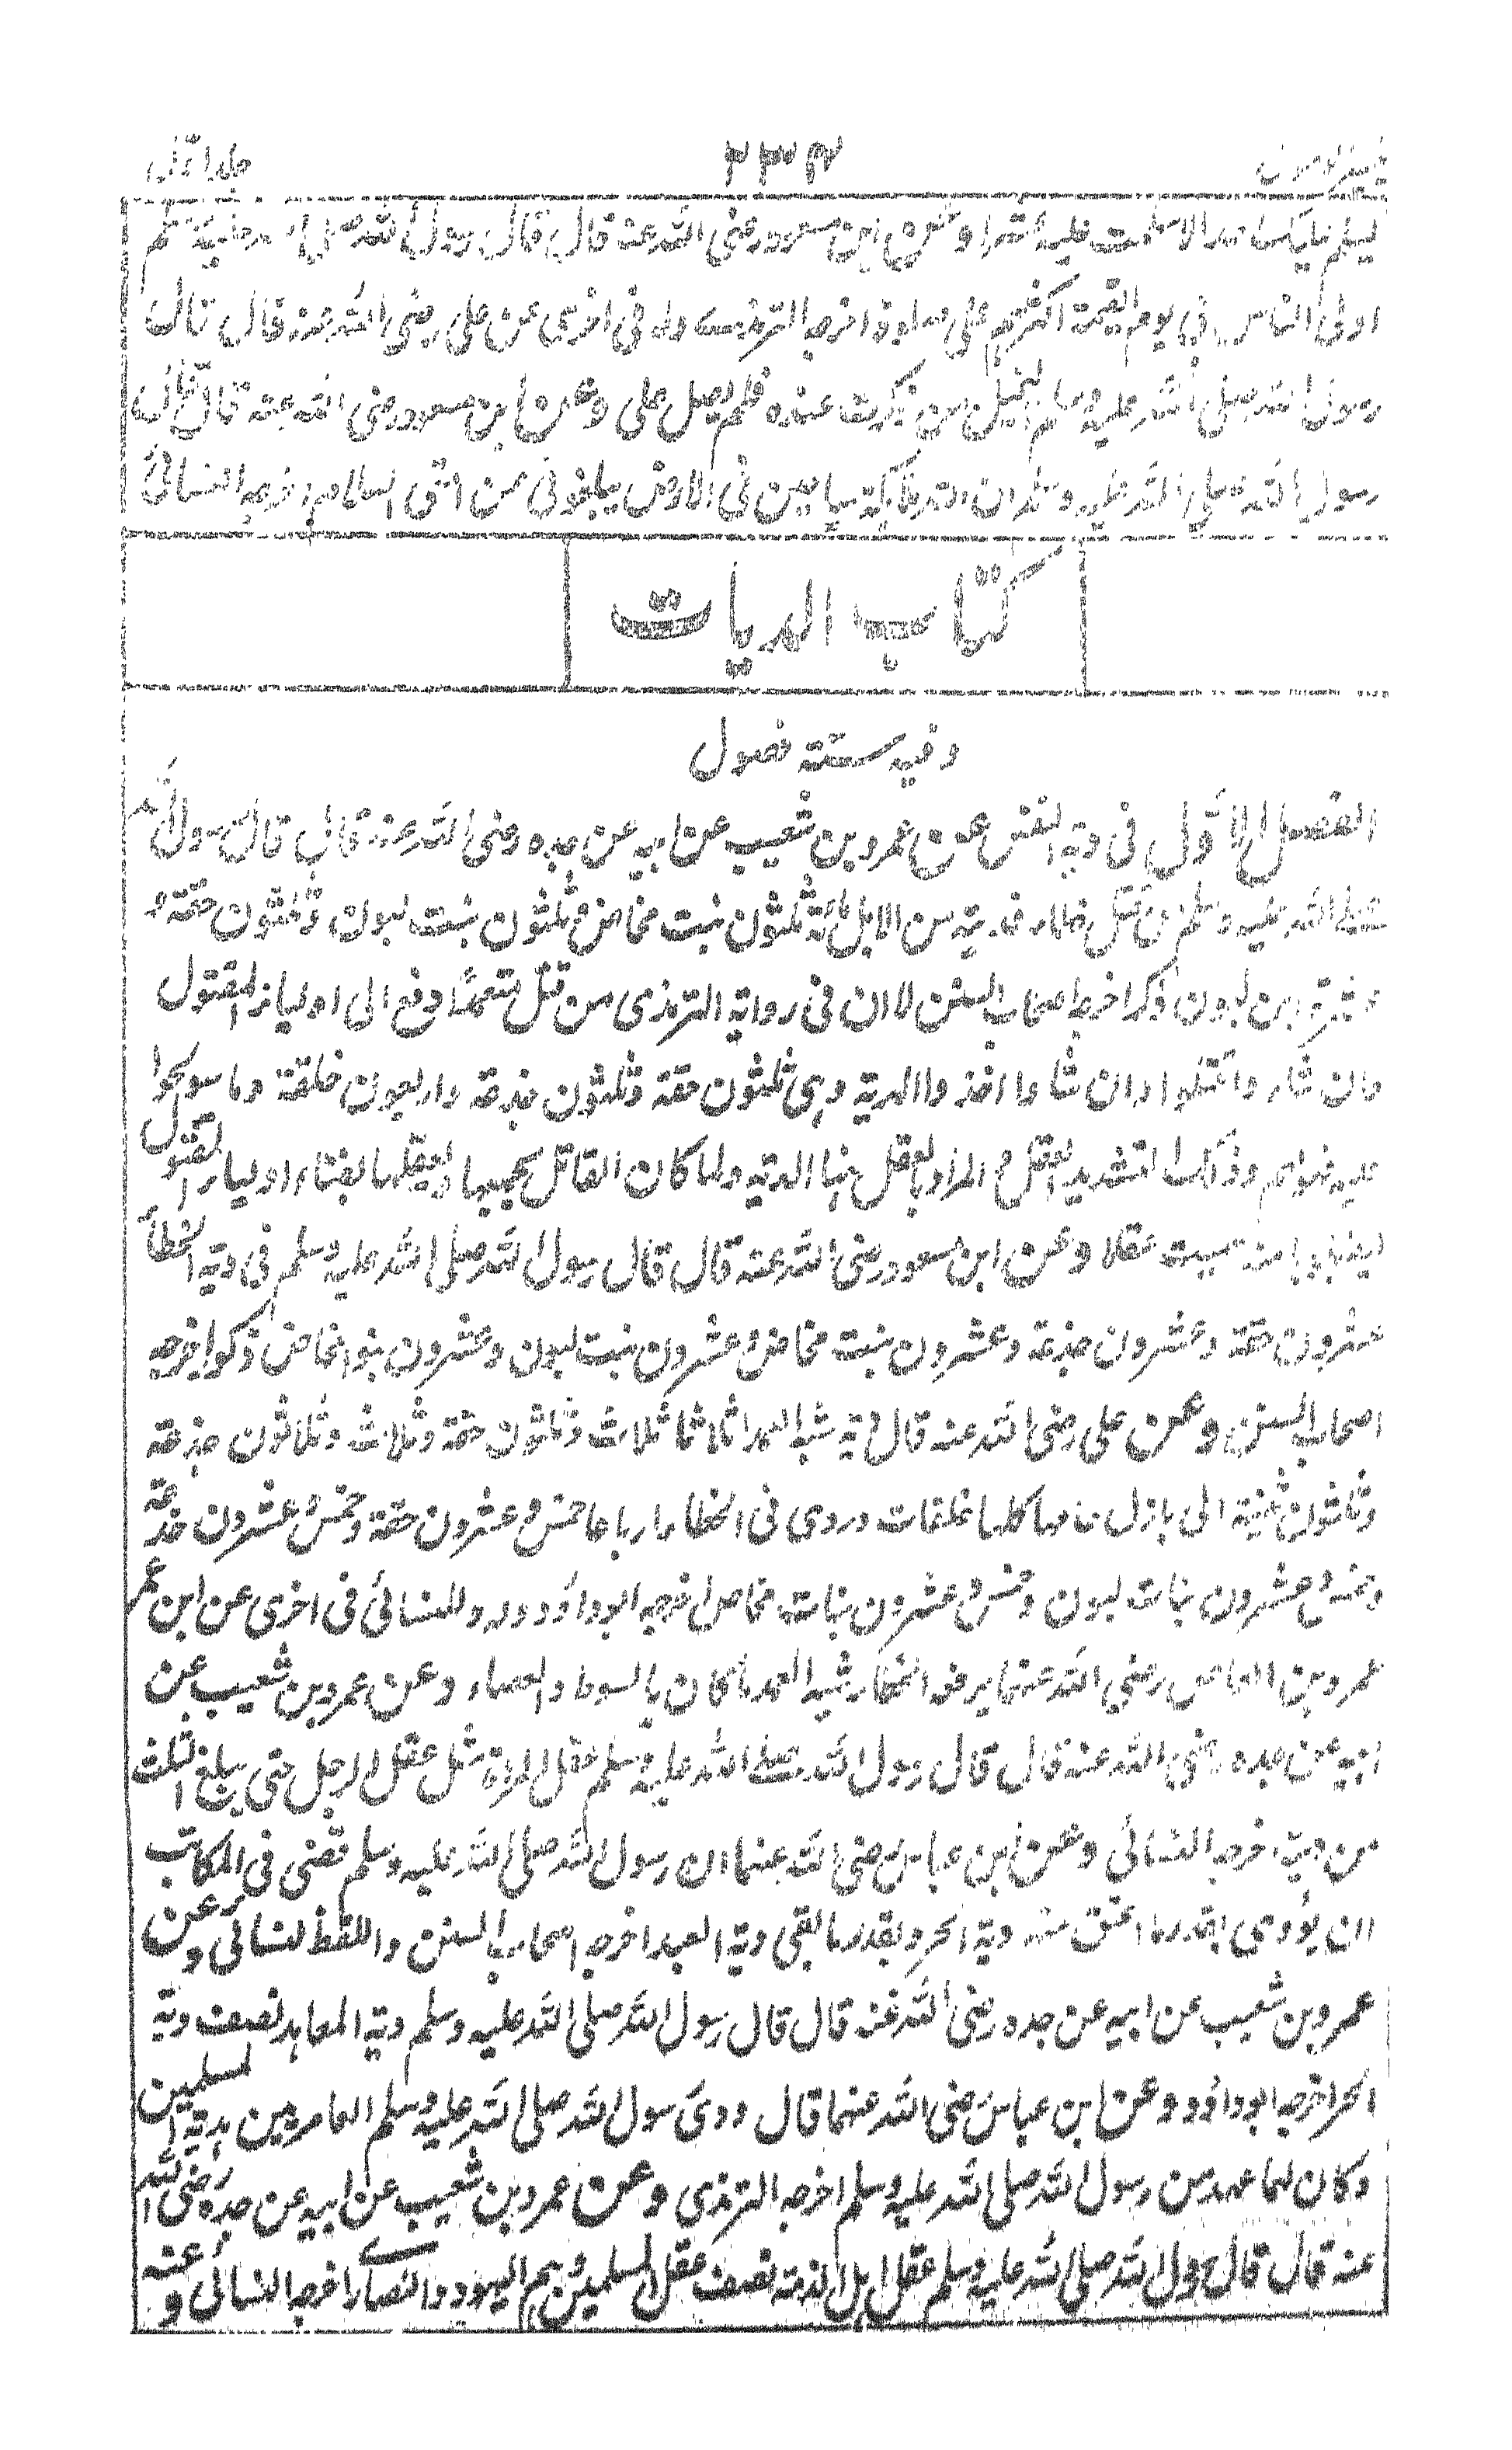 جلد اوّل ۲۳۴
يسلم عليك احد الا سلمت عليه عشرا وعن ابن مسعود رضى الله عنه قال قال رسول الله صلى الله عليه وسلم
اولى الناس بى يوم القيمة اكثرهم على صلوة اخرجه الترمذى وله فى اخرى عن على رضى الله عنه قال قال
رسول الله صلى الله عليه وسلم البخيل من ذكرت عنده فلم يصل على وعن ابن مسعود رضى الله عنه قال قال
رسول الله صلى الله عليه وسلم ان لله ملائكة سياحين فى الارض يبلغونى من امتى السلام اخرجه النسائى
كتاب الديات
وفيه ستة فصول
الفصل الاوّل فى دية النفس عن عمرو بن شعيب عن ابيه عن جده رضى الله عنه قال قال رسول الله
صلى الله عليه وسلم من قتل خطاء فديته من الابل مائة ثلثون بنت مخاض وثلثون بنت لبون وثلثون حقة و
عشرة ابن لبون ذكر اخرجه اصحاب السنن الا ان فى رواية الترمذى من قتل متعمدًا دفع الى اولياء المقتول
فان شاء وا قتلوا وان شا وا اخذ واالدية وهى ثلثون حقة وثلثون جذعة واربعون خلفة وما صولحوا
عليه فهو لهم وذلك لتشديد العقل والمراد بالعقل هنا الدية ولما كان القاتل يجمعها ويعقلها بفناء اولياء المقتول
ليقبلوها منه سميت عقلا وعن ابن مسعود رضى الله عنه قال قال رسول الله صلى الله عليه وسلم فى دية الخطأ
عشرون حقة وعشرون جذعة وعشرون بنت مخاض وعشرون بنت لبون وعشرون بنو مخاض ذكور اخرجه
اصحاب السنن وعن على رضى الله عنه قال دية شبه العمد اثلاثا ثلاث وثلثون حقة وثلاث وثلاثون جذعة
وثلثون ثنية الى بازل عامها كلها خلفات وروى فى الخطا ارباعا خمس وعشرون حقة وخمس وعشرون جذعة
وخمس وعشرون بنات لبون وخمس وعشرون بنات مخاض اخرجه ابو داؤد وله وللنسائى فى اخرى عن ابن عمر
عمرو بن العاص رضى الله عنهما يرفعه الخطأ شبه العمد ما كان بالسوط والعصاء وعن عمرو بن شعيب عن
ابيه عن جده رضى الله عنه قال قال رسول الله صلى الله عليه وسلم عقل المرءة مثل عقل الرجل حتى يبلغ الثلث
من ديته اخرجه النسائى وعن ابن عباس رضى الله عنهما ان رسول الله صلى الله عليه وسلم قضى فى المكاتب
ان يؤدى بقدر ما اعتق منه دية الحر وبقدر ما بقى دية العبد اخرجه اصحاب السنن واللفظ لنسائى وعن
عمرو بن شعيب عن ابيه عن جده رضى الله عنه قال قال رسول الله صلى الله عليه وسلم دية المعاهد نصف دية
الحر اخرجه ابو داؤد وعن ابن عباس رضى الله عنهما قال ودى رسول الله صلى الله عليه وسلم العامريين بدية المسلمين
وكان لهما عهد من رسول الله صلى الله عليه وسلم اخرجه الترمذى وعن عمرو بن شعيب عن ابيه عن جده رضى الله
عنه قال قال رسول الله صلى الله عليه وسلم عقل اهل الذمة نصف عقل المسلمين وهم اليهود والنصارى اخرجه النسائى وعنه